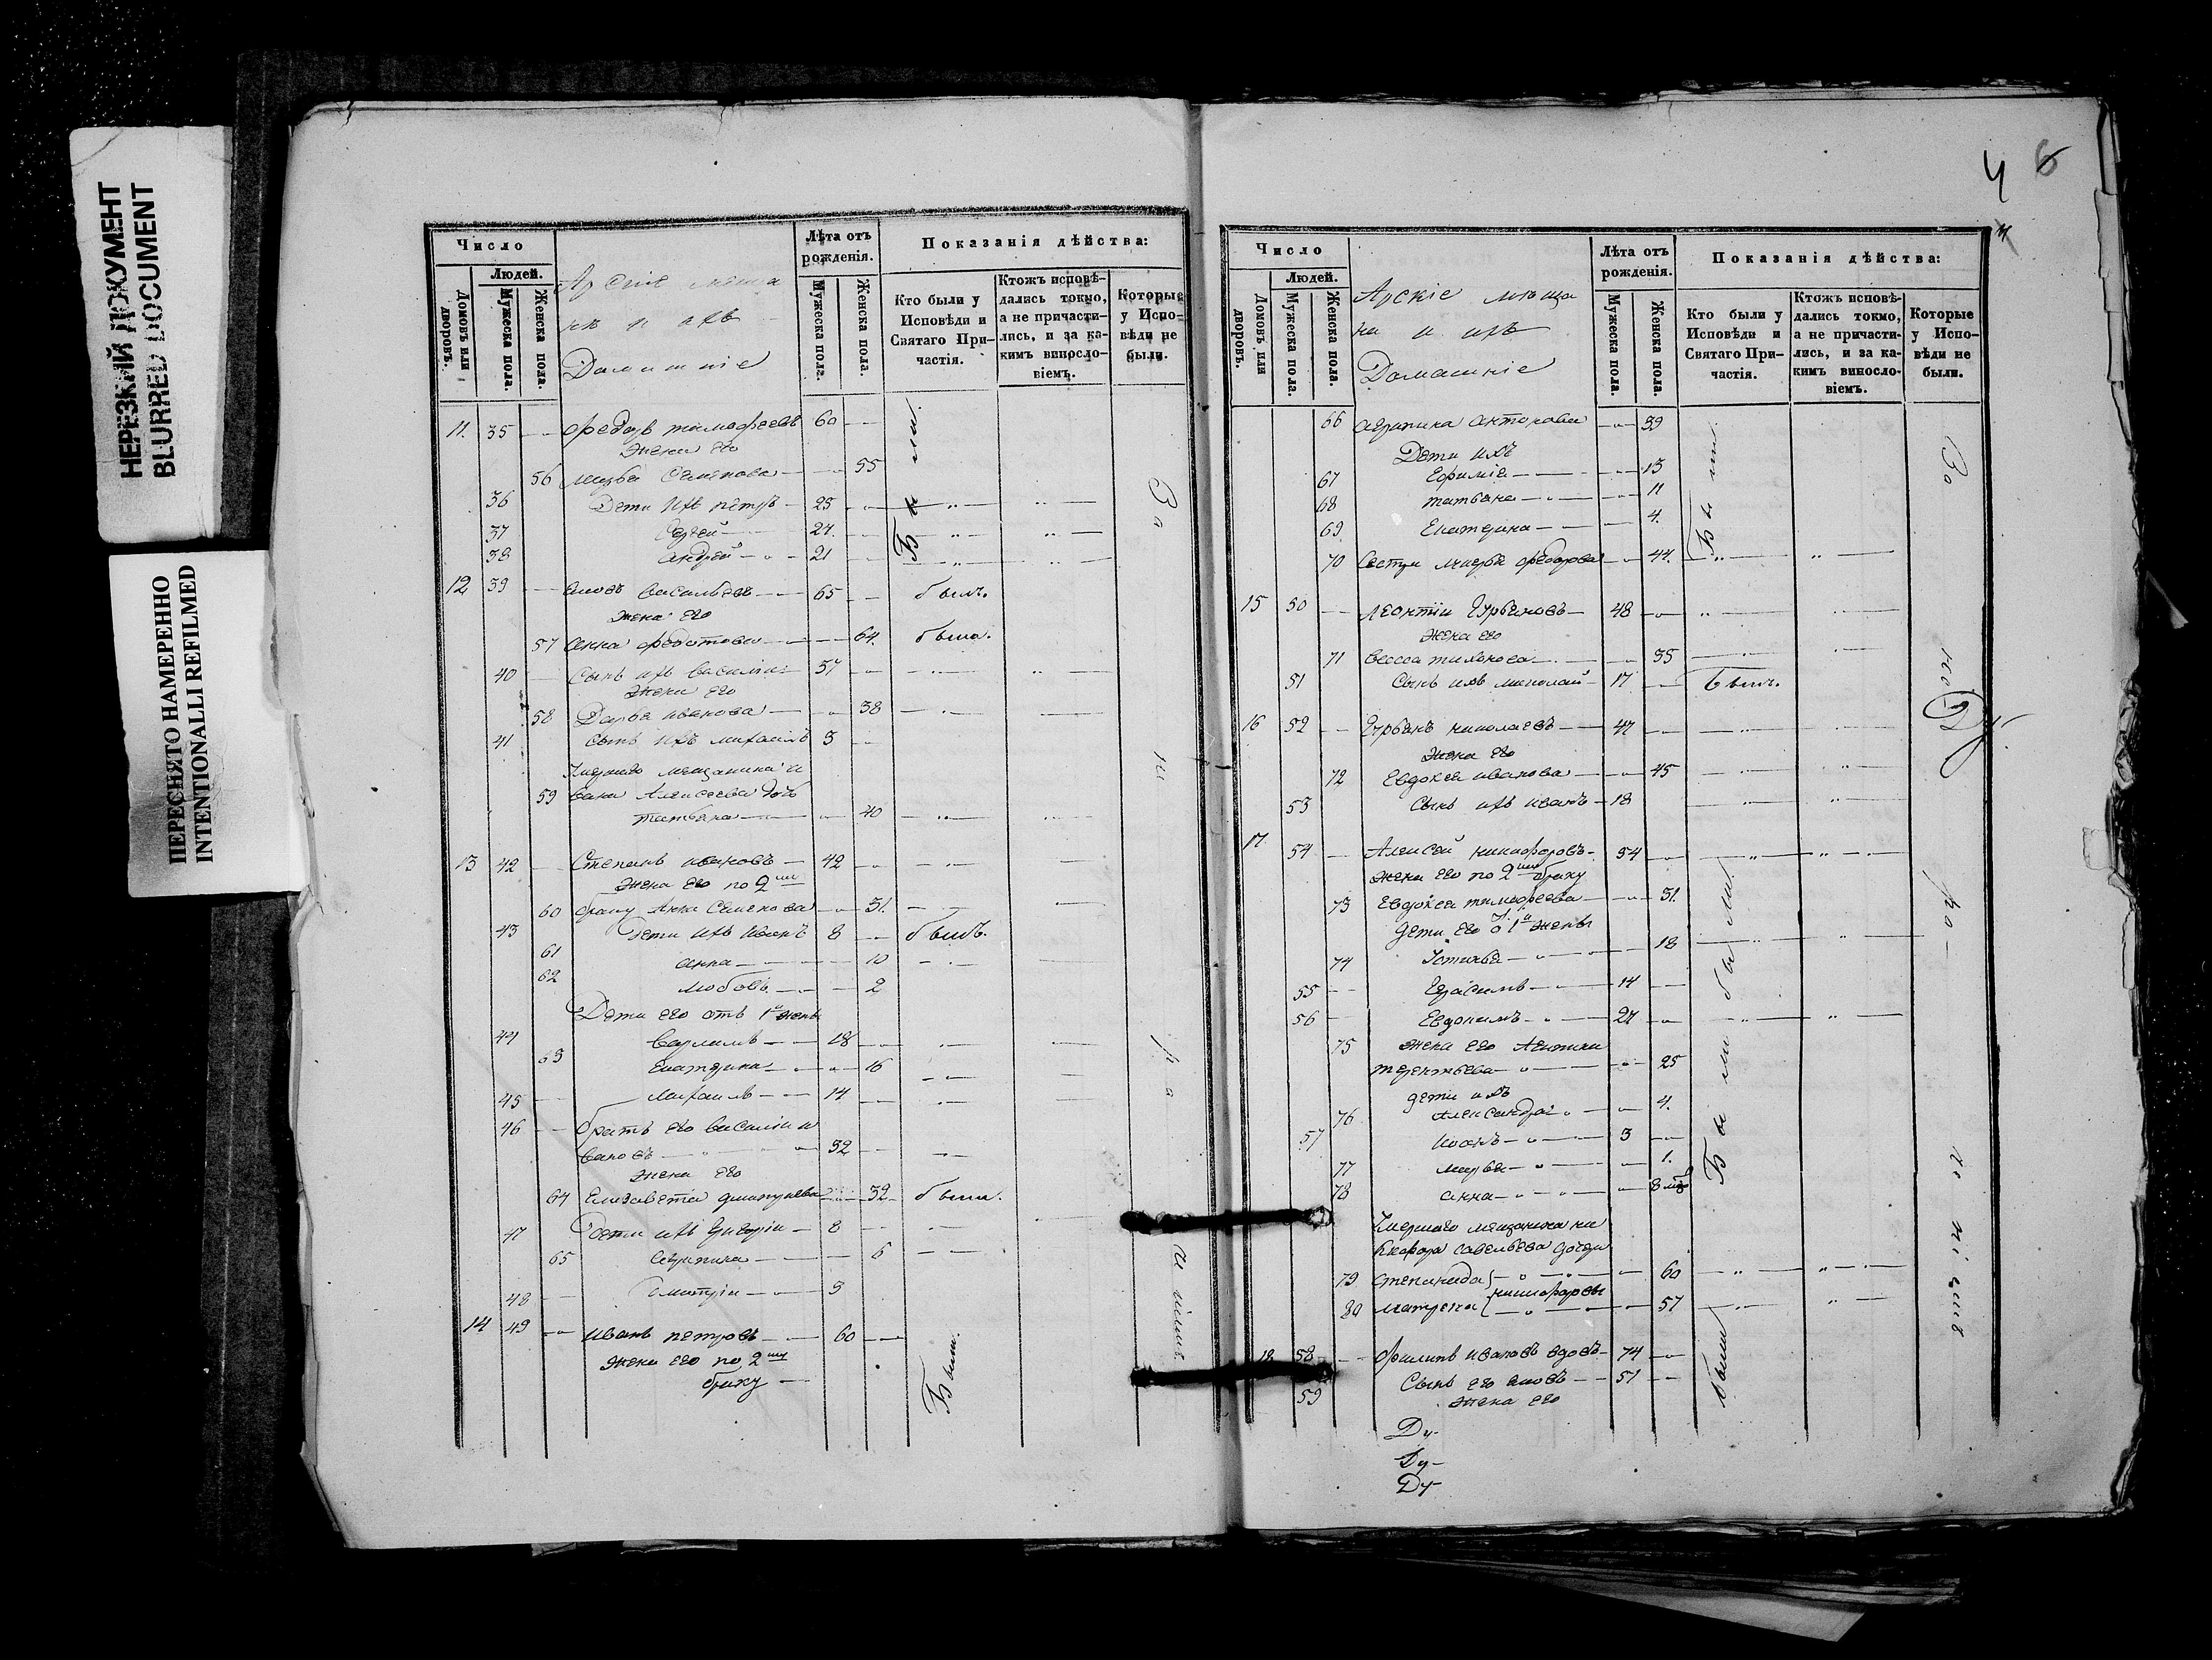 НЕРЕЗКИЙ ДОКУМЕНТ
BLURRED DOCUMENT
ПЕРЕСНЯТО НАМЕРЕННО
INTENTIONALLI REFILMED
Число
Людей.
Домовъ или дворовъ.
Мужеска пола.
Женска пола.
Арскіе меща
не и ихъ
Домашніе
Лѣта отъ рожденія.
Мужеска пола.
Женска пола.
Показанія дѣйства:
Кто были у Исповѣди и Святаго Причастія.
Ктожъ исповѣдались токмо, а не причастились, и за какимъ винословіемъ.
Которые у Исповѣди не были.
11. 35 Федоръ тимофеевъ 60
жена его
56 марья Семенова 55
36 Дети ихъ петръ 25
37 Сергей 24.
38 андрей 21
12 39 аковъ васильевъ 65 былъ.
жена его
57 анна федотова 64. была.
40 Сынъ ихъ василіи 37
жена его
58 Дарья иванова 38
41 Сынъ ихъ михаилъ 3
Умершаго мещанина и
59 вана Алексеева дочь
татьяна 40
13 42 Степанъ ивановъ 42
жена его по 2му
60 браку Анна Семенова 31.
43 Дети ихъ иванъ 8 былъ.
61 анна 10
62 любовь 2
Дети его отъ 1й жены
44 варламъ 18
63 Екатерина 16
45 михаилъ 14
46 братъ его василіи и
вановъ 32
жена его
64 Елизавета 32 была.
47 Дети ихъ григоріи 8
65 агрипина 6
48 Дмитріи 3
14 49 иванъ петровъ 60
жена его по 2му
браку
Были.
4 6
Число
Людей.
Домовъ или дворовъ.
Мужеска пола.
Женска пола.
Арскіе меща
не и ихъ
Домашніе
Лѣта отъ рожденія.
Мужеска пола.
Женска пола.
Показанія дѣйства:
Кто были у Исповѣди и Святаго Причастія.
Ктожъ исповѣдались токмо, а не причастились, и за какимъ винословіемъ.
Которые у Исповѣди не были.
66 агрипина антонова 39
Дети ихъ
67 Ефимія 13
68 татьяна 11
69 Екатерина 4.
70 Сестра марья федорова 44.
15 50 леонтіи Урбановъ 48
жена его
71 васса тихонова 35
51 Сынъ ихъ николай 17 Былъ.
16 52 Урбанъ николаевъ 47
жена его
72 Евдокея иванова 45
53 Сынъ ихъ иванъ 18
17 54 Алексей никифоровъ 34
жена его по 2му браку
73 Евдокея тимофеева 31.
Дети его о 1й жены
74 Устинья 18
55 Герасимъ 14
56 Евдокимъ 27
75 жена его
терентьева 25
дети ихъ
76 александра 4.
57 иванъ 3
77 марья 1.
78 анна 8
Умершаго мещанина ни
кифора савельева дочери
79 степанида 60
никифоровы
80 матрена 57
18 58 Филипъ ивановъ вдовъ 74
Сынъ его аковъ 51
59 жена его
были
Ду-
Ду-
Ду-